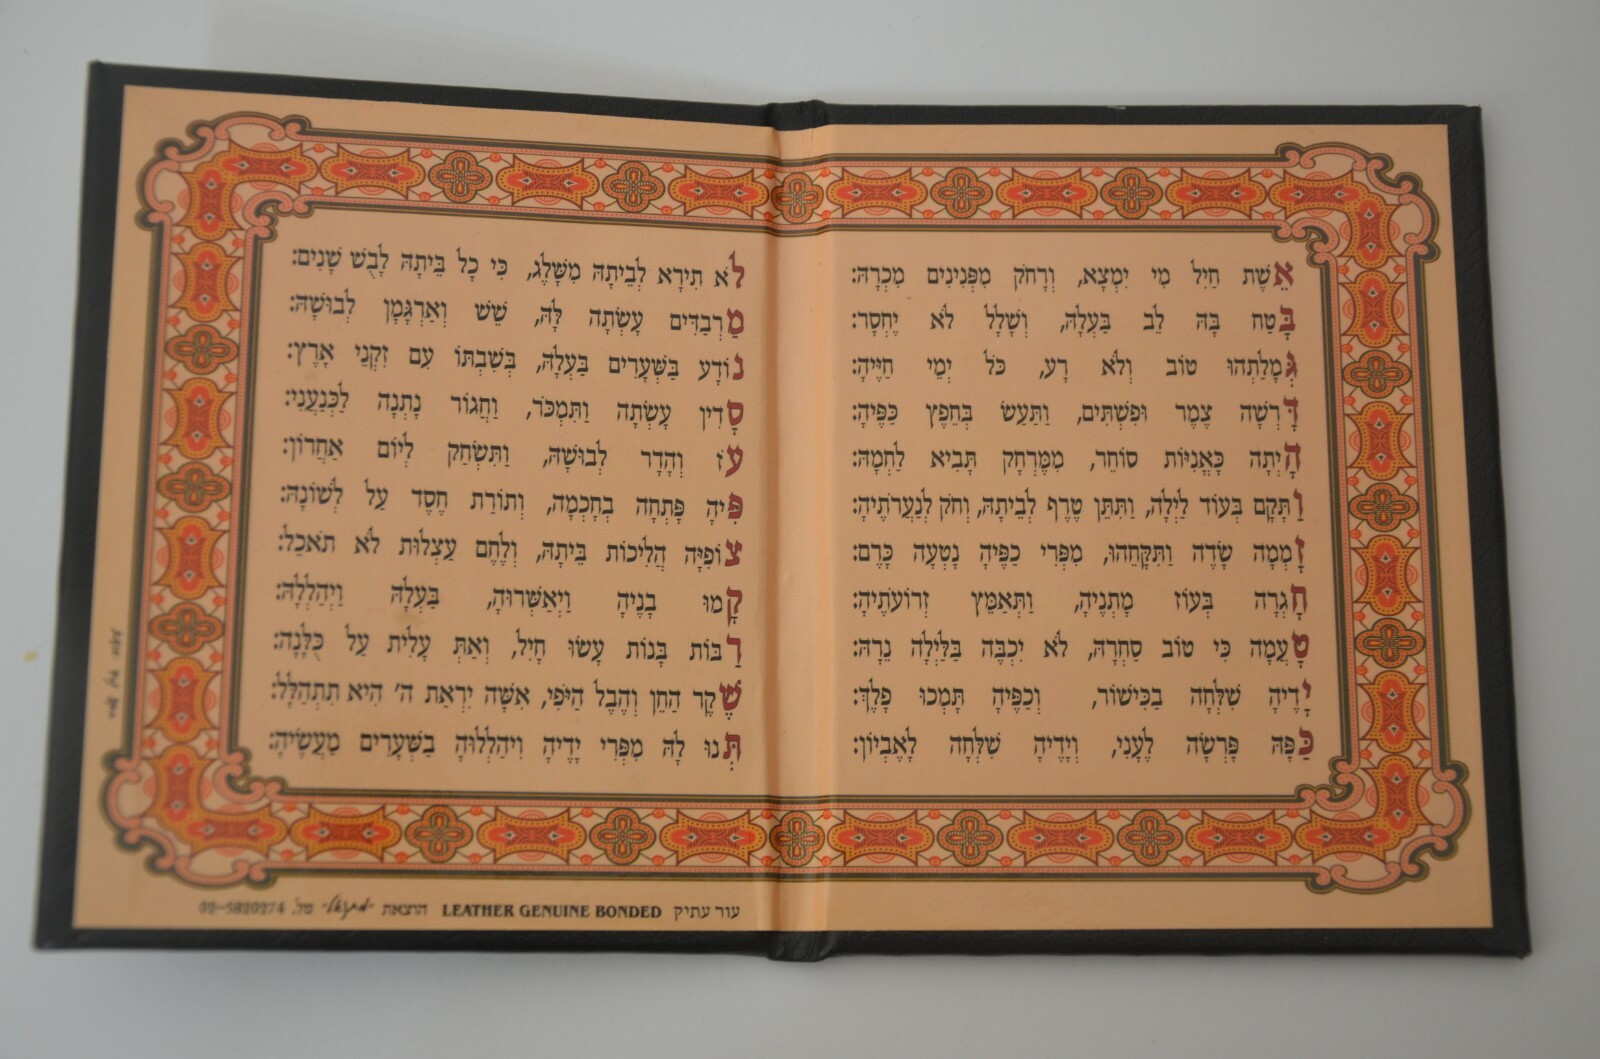 אֵשֶׁת חַיִל מִי יִמְצָא, וְרָחֹק מִפְּנִינִים מִכְרָהּ:
בָּטַח בָּהּ לֵב בַּעְלָהּ, וְשָׁלָל לֹא יֶחְסָר:
גְּמָלַתְהוּ טוֹב וְלֹא רָע, כֹּל יְמֵי חַיֶּיהָ:
דָּרְשָׁה צֶמֶר וּפִשְׁתִּים, וַתַּעַשׂ בְּחֵפֶץ כַּפֶּיהָ:
הָיְתָה כָּאֳנִיּוֹת סוֹחֵר, מִמֶּרְחָק תָּבִיא לַחְמָהּ:
וַתָּקָם בְּעוֹד לַיְלָה, וַתִּתֵּן טֶרֶף לְבֵיתָהּ, וְחֹק לְנַעֲרֹתֶיהָ:
זָמְמָה שָׂדֶה וַתִּקָּחֵהוּ, מִפְּרִי כַפֶּיהָ נָטְעָה כָּרֶם:
חָגְרָה בְּעוֹז מָתְנֶיהָ, וַתְּאַמֵּץ זְרוֹעֹתֶיהָ:
טָעֲמָה כִּי טוֹב סַחְרָהּ, לֹא יִכְבֶּה בַּלַּיְלָה נֵרָהּ:
יָדֶיהָ שִׁלְּחָה בַכִּישׁוֹר, וְכַפֶּיהָ תָּמְכוּ פָלֶךְ:
כַּפָּהּ פָּרְשָׂה לֶעָנִי, וְיָדֶיהָ שִׁלְּחָה לָאֶבְיוֹן:
לֹא תִירָא לְבֵיתָהּ מִשָּׁלֶג, כִּי כָל בֵּיתָהּ לָבֻשׁ שָׁנִים:
מַרְבַדִּים עָשְׂתָה לָּהּ, שֵׁשׁ וְאַרְגָּמָן לְבוּשָׁהּ:
נוֹדָע בַּשְּׁעָרִים בַּעְלָהּ, בְּשִׁבְתּוֹ עִם זִקְנֵי אָרֶץ:
סָדִין עָשְׂתָה וַתִּמְכֹּר, וַחֲגוֹר נָתְנָה לַכְּנַעֲנִי:
עֹז וְהָדָר לְבוּשָׁהּ, וַתִּשְׂחַק לְיוֹם אַחֲרוֹן:
פִּיהָ פָּתְחָה בְחָכְמָה, וְתוֹרַת חֶסֶד עַל לְשׁוֹנָהּ:
צוֹפִיָּה הֲלִיכוֹת בֵּיתָהּ, וְלֶחֶם עַצְלוּת לֹא תֹאכֵל:
קָמוּ בָנֶיהָ וַיְאַשְּׁרוּהָ, בַּעְלָהּ וַיְהַלְלָהּ:
רַבּוֹת בָּנוֹת עָשׂוּ חָיִל, וְאַתְּ עָלִית עַל כֻּלָּנָה:
שֶׁקֶר הַחֵן וְהֶבֶל הַיֹּפִי, אִשָּׁה יִרְאַת ה' הִיא תִתְהַלָּל:
תְּנוּ לָהּ מִפְּרִי יָדֶיהָ וִיהַלְלוּהָ בַשְּׁעָרִים מַעֲשֶׂיהָ:
עור עתיק LEATHER GENUINE BONDED הוצאת טל. 02-5820274